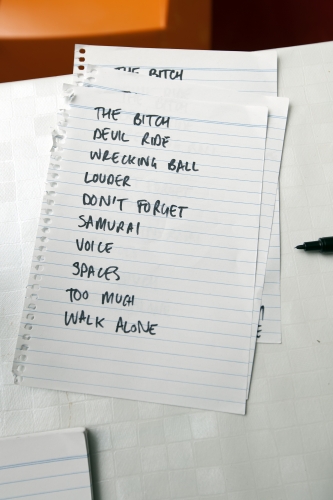 THE BITCH
THE BITCH
DEVIL RIDE
WRECKING BALL
LOUDER
DON'T FORGET
SAMURAI
VOICE
SPACES
TOO MUCH
WALK ALONE